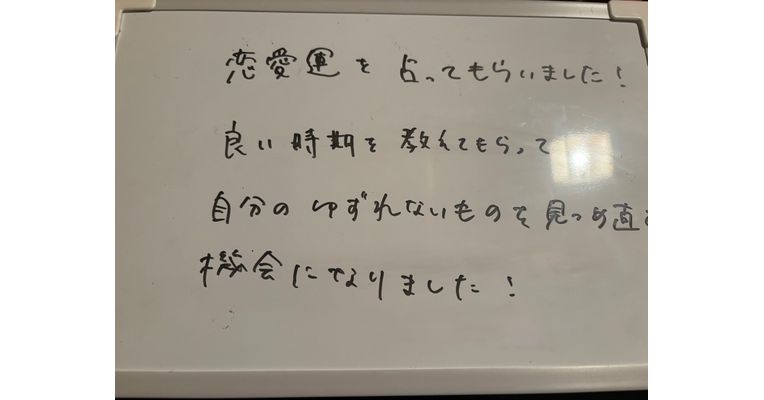 恋愛運を占ってもらいました!
良い時期を教えてもらって
自分のゆずれないものを見つめ直す
機会になりました!